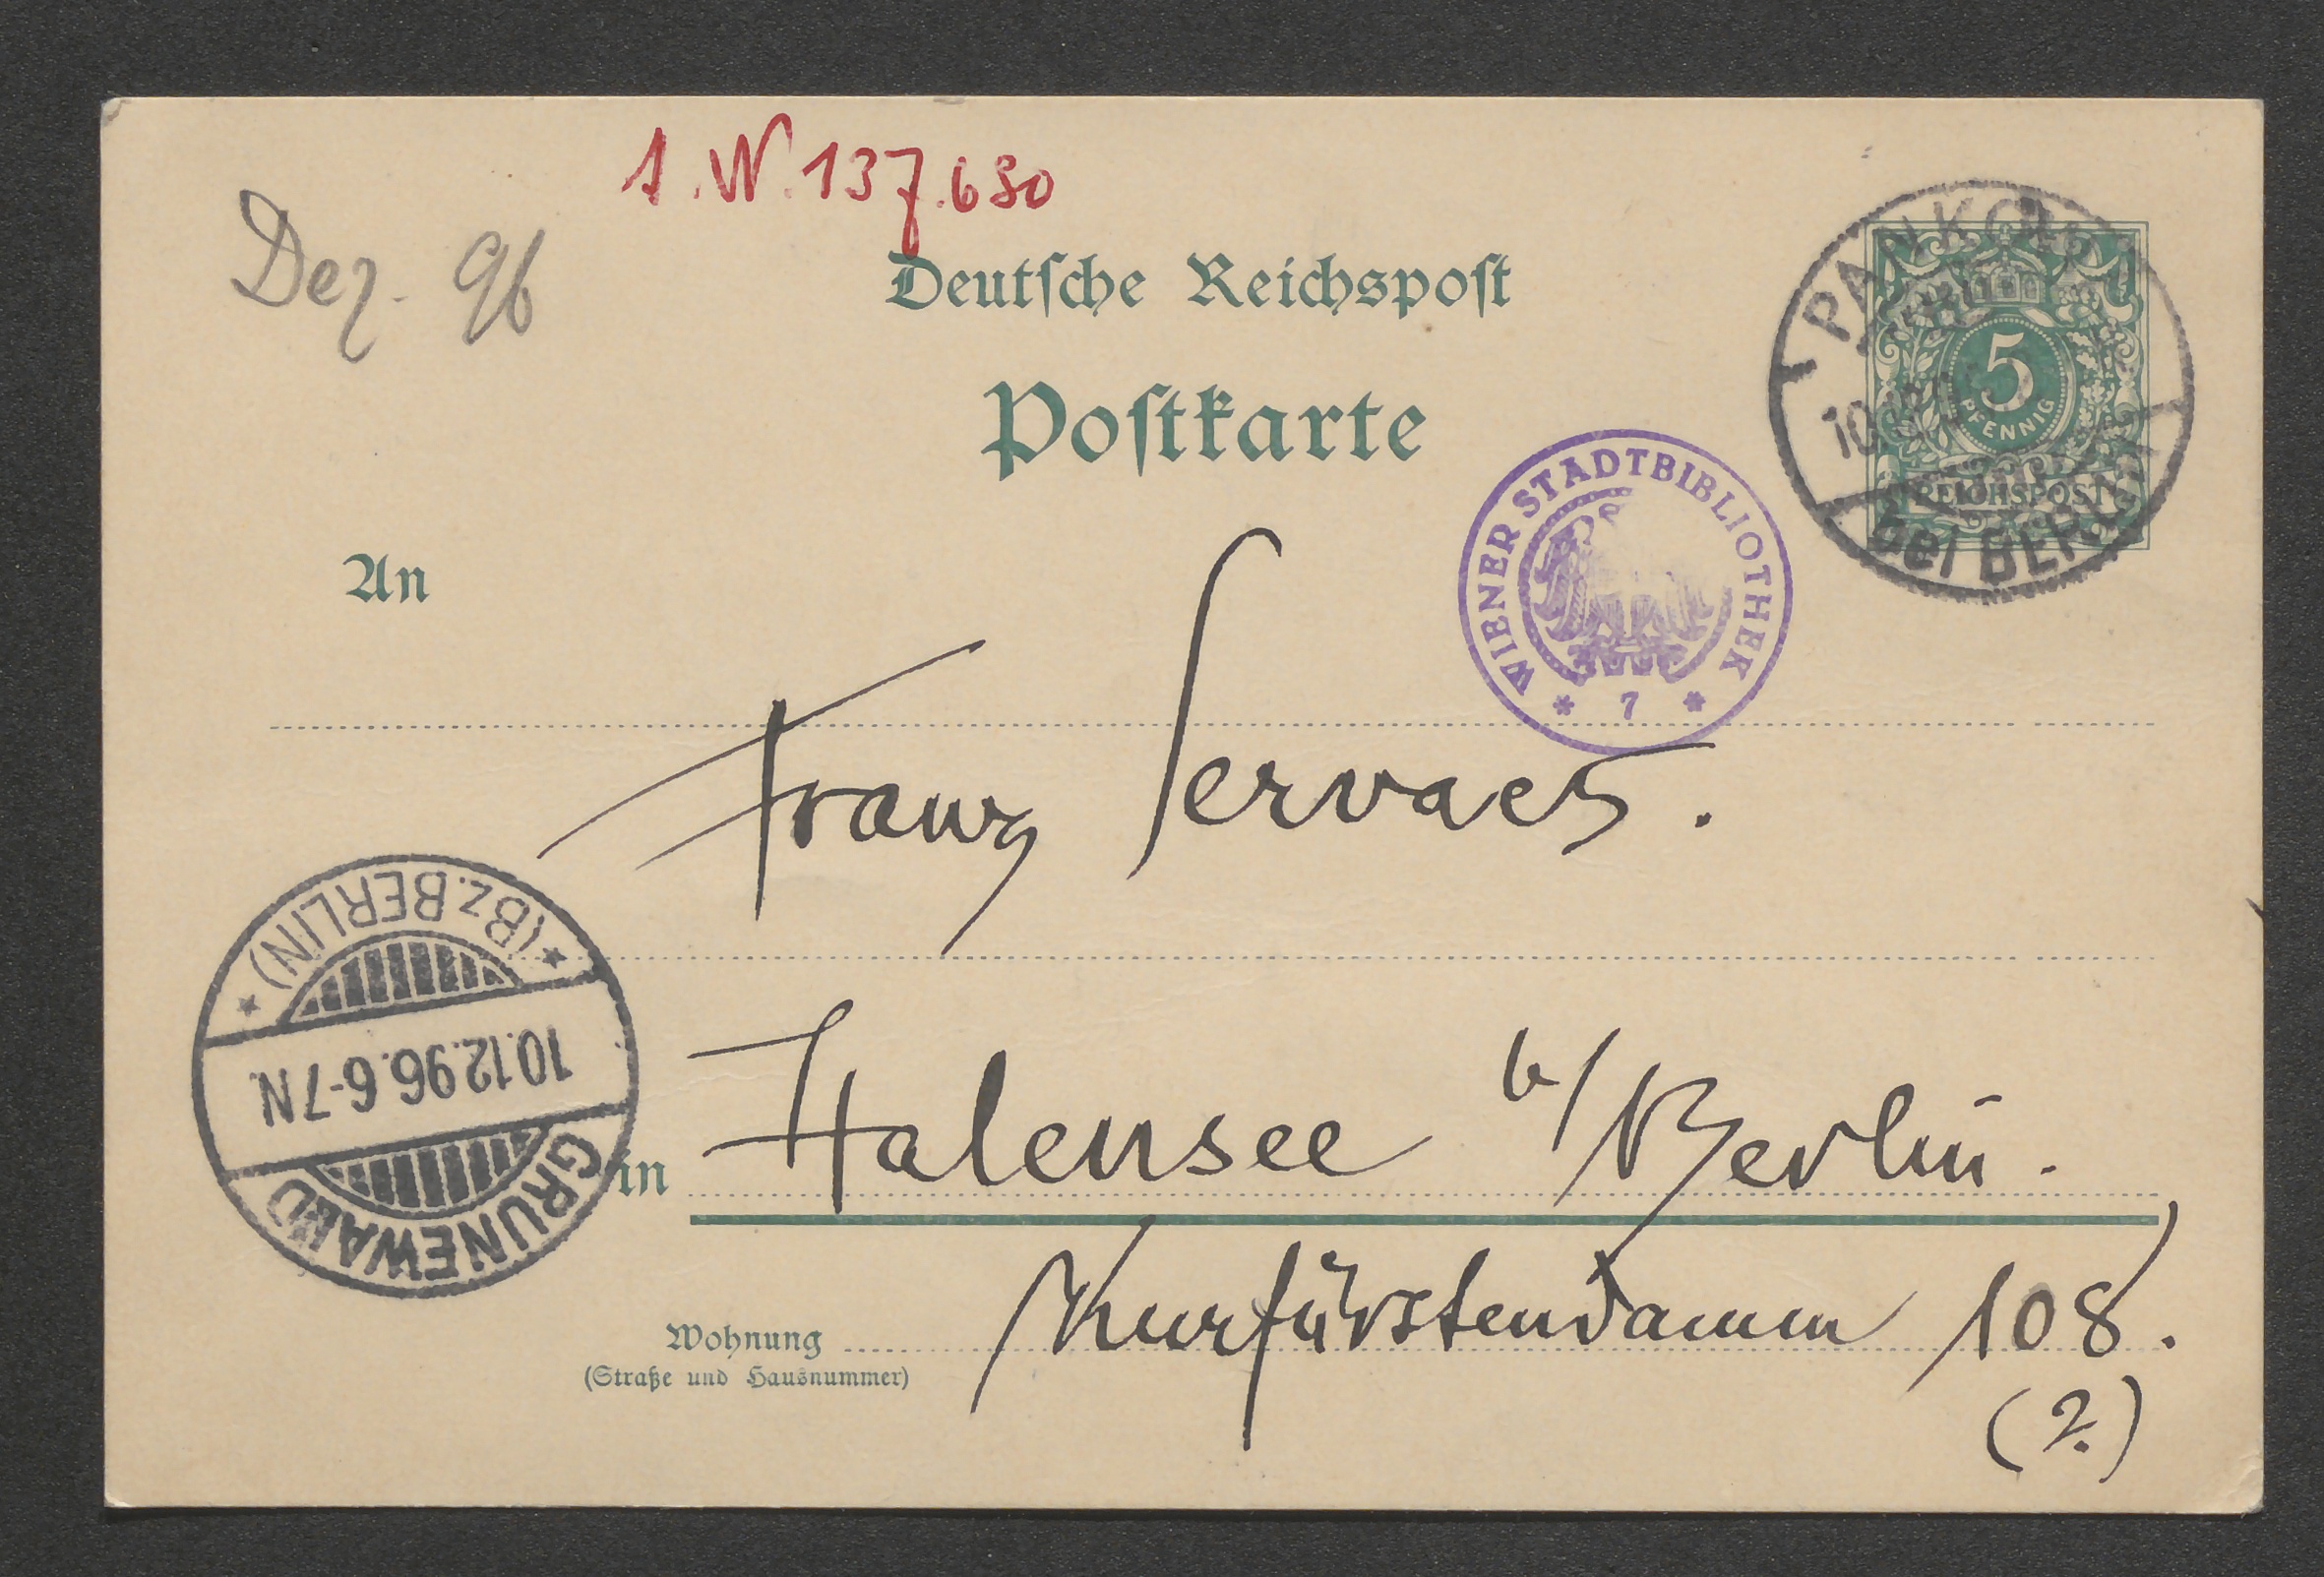 1. N. 137.690
Dez. 96
Deutsche Reichspost
Postkarte
PANKOW
bei BERLIN
5
PFENNIG
REICHSPOST
WIENER STADTBIBLIOTHEK
* 7 *
An
Franz Servaes.
*(BZ. BERLIN)*
10.12.96. 6-7N
GRUNEWALD
in Halensee b/Berlin.
Wohnung Kurfürstendamm 108.
(Straße und Hausnummer)
(?)